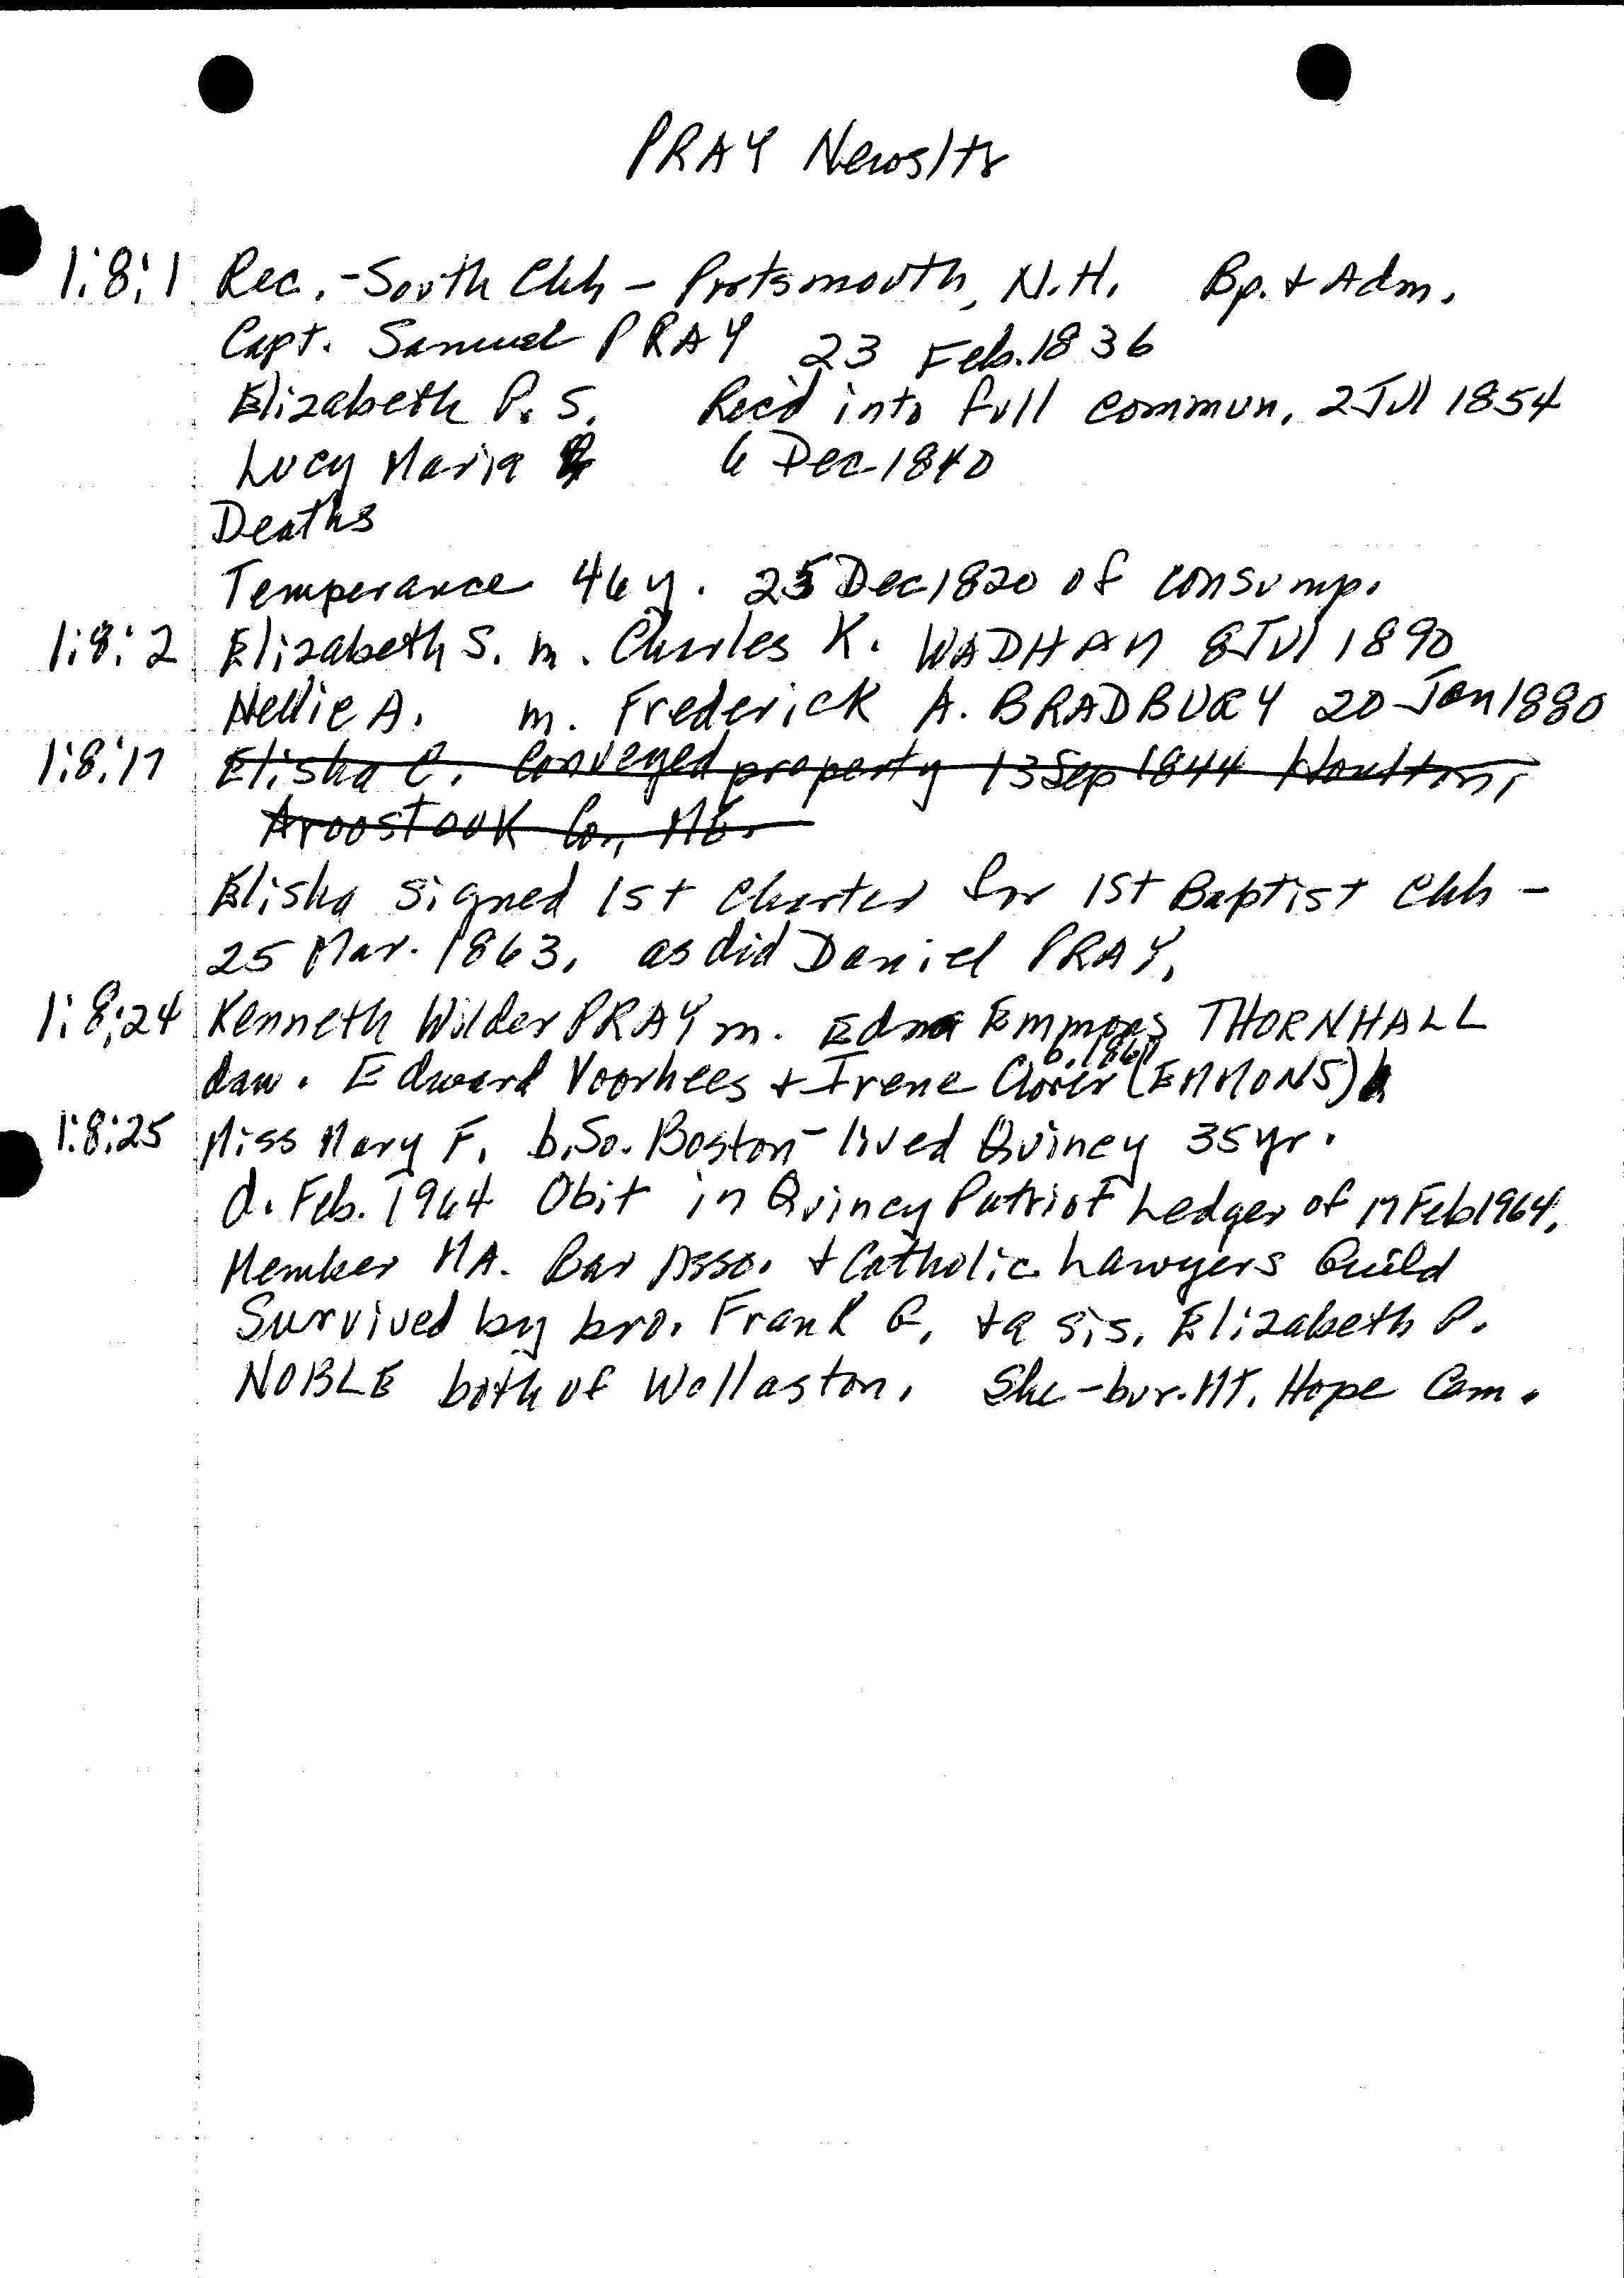 PRAY Newsltr
1:8:1 Rec. - South Chh - Portsmouth, N.H. Bp. + Adm.
Capt. Samuel PRAY 23 Feb. 1836
Elizabeth P. S. Rec'd into full commun. 2 Jul 1854
Lucy Maria 6 Dec 1840
Deaths
Temperance 46 y. 25 Dec 1820 of consump.
1:8:2 Elizabeth S. m. Charles K. WADHAM 8 Jul 1890
Nellie A. m. Frederick A. BRADBURY 20 Jan 1880
1:8:17 Elisha C. Conveyed property 13 Sep 1844 Houlton,
Aroostook Co., ME.
Elisha signed 1st Charter for 1st Baptist Chh -
25 Mar. 1863, as did Daniel PRAY.
1:8:24 Kenneth Wilder PRAY m. Edna Emmons THORNHALL
dau. Edward Voorhees + Irene (EMMONS)
b. 1867
1:8:25 Miss Mary F. b. So. Boston - lived Quincy 35 yr.
d. Feb. 1964 Obit in Quincy Patriot Ledger of 17 Feb 1964.
Member MA. Bar Asso. + Catholic Lawyers Guild
Survived by bro. Frank G. + a sis. Elizabeth P.
NOBLE both of Wollaston. She - bur. Mt. Hope Cem.